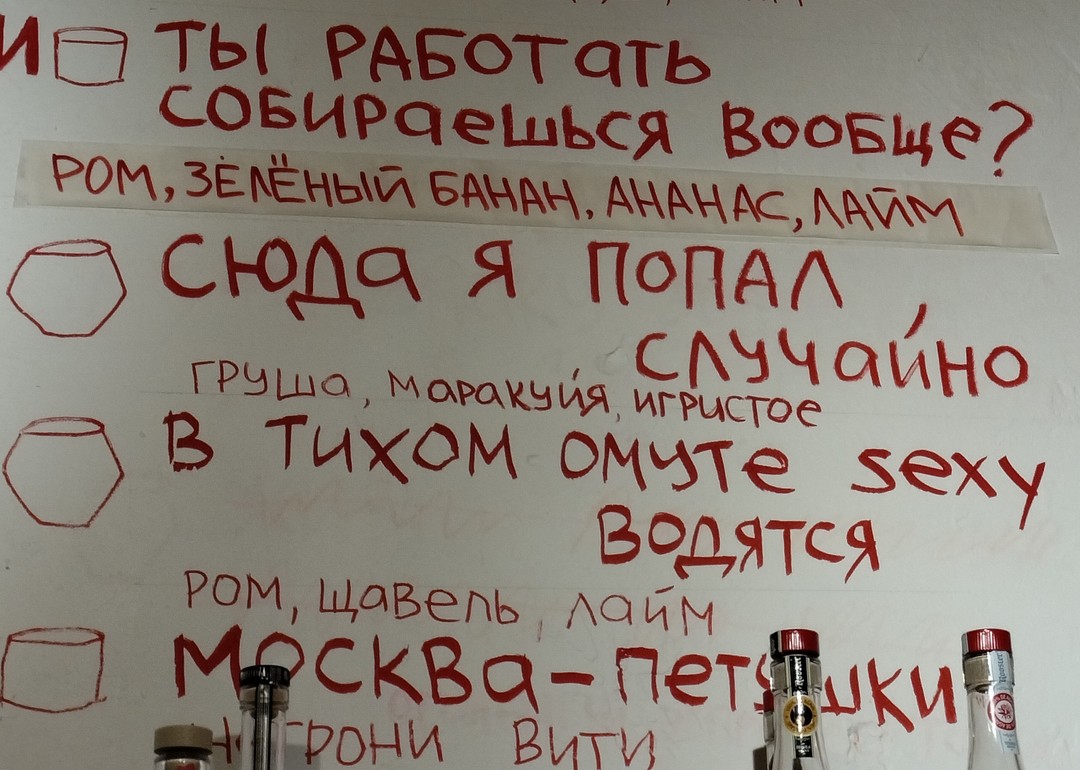 И
ТЫ РАБОТАТЬ
СОБИРАЕШЬСЯ ВООБЩЕ?
РОМ, ЗЕЛЁНЫЙ БАНАН, АНАНАС, ЛАЙМ
СЮДА Я ПОПАЛ
СЛУЧАЙНО
ГРУША, МАРАКУЙЯ, ИГРИСТОЕ
В ТИХОМ ОМУТЕ sexy
ВОДЯТСЯ
РОМ, ЩАВЕЛЬ, ЛАЙМ
МОСКВА-ПЕТУШКИ
НЕГРОНИ ВИТИ